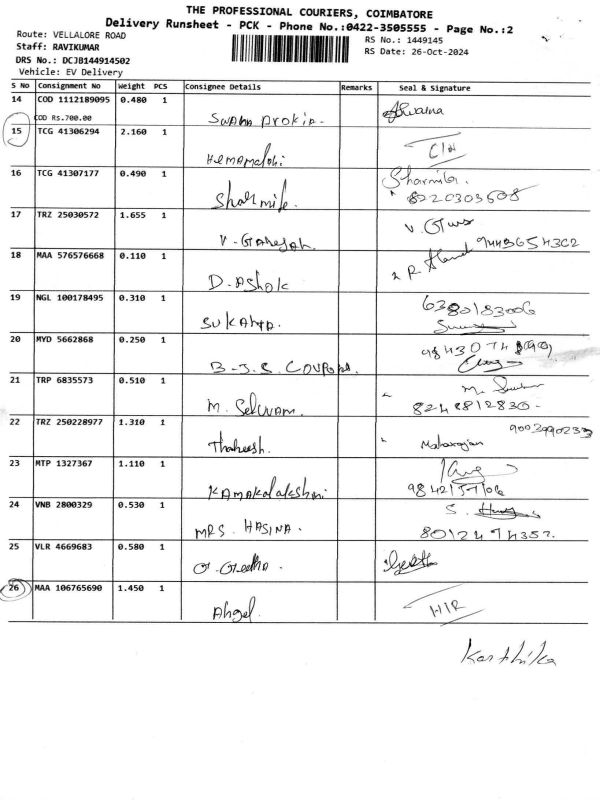 THE PROFESSIONAL COURIERS, COIMBATORE
Delivery Runsheet - PCK - Phone No.:0422-3505555 - Page No.:2
Route: VELLALORE ROAD
Staff: RAVIKUMAR
DRS No.: DCJB144914502
Vehicle: EV Delivery
RS No.: 1449145
RS Date: 26-Oct-2024
S No Consignment No Weight PCS Consignee Details Remarks Seal & Signature
14 COD 1112189095 0.480 1
COD Rs.700.00
15 TCG 41306294 2.160 1 Hemamalini
16 TCG 41307177 0.490 1 Sharmila. Sharmila.
8220303508
17 TRZ 25030572 1.655 1 V. Ganesan
9443654302
18 MAA 576576668 0.110 1 D. Ashok
19 NGL 100178495 0.310 1 SUKANYA. 6380183006
20 MYD 5662868 0.250 1
21 TRP 6835573 0.510 1 M. Selvam.
8248812830-
22 TRZ 250228977 1.310 1 Maharajan 9003990233
23 MTP 1327367 1.110 1 KAMAKALAKSHMI
9842157106
24 VNB 2800329 0.530 1 MRS. HASINA.
8012474357.
25 VLR 4669683 0.580 1 G. Geetha.
26 MAA 106765690 1.450 1 Angel.
Karthika